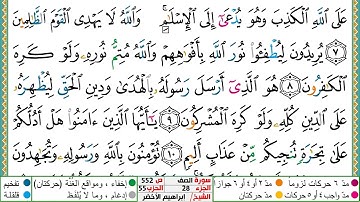 عَلَى ٱللَّهِ ٱلْكَذِبَ وَهُوَ يُدْعَىٰٓ إِلَى ٱلْإِسْلَٰمِ ۚ وَٱللَّهُ لَا يَهْدِى ٱلْقَوْمَ ٱلظَّٰلِمِينَ
٧ يُرِيدُونَ لِيُطْفِـُٔوا۟ نُورَ ٱللَّهِ بِأَفْوَٰهِهِمْ وَٱللَّهُ مُتِمُّ نُورِهِۦ وَلَوْ كَرِهَ
ٱلْكَٰفِرُونَ ٨ هُوَ ٱلَّذِىٓ أَرْسَلَ رَسُولَهُۥ بِٱلْهُدَىٰ وَدِينِ ٱلْحَقِّ لِيُظْهِرَهُۥ
عَلَى ٱلدِّينِ كُلِّهِۦ وَلَوْ كَرِهَ ٱلْمُشْرِكُونَ ٩ يَٰٓأَيُّهَا ٱلَّذِينَ ءَامَنُوا۟ هَلْ أَدُلُّكُمْ
عَلَىٰ تِجَٰرَةٍ تُنجِيكُم مِّنْ عَذَابٍ أَلِيمٍ ١٠ تُؤْمِنُونَ بِٱللَّهِ وَرَسُولِهِۦ وَتُجَٰهِدُونَ
مدّ ٦ حركات لزوما مدّ ٢ أو ٤ أو ٦ جوازا سورة الصف ص 552 إخفاء، ومواقع الغنّة (حركتان) تفخيم
مدّ واجب ٤ أو ٥ حركات مدّ حركتان الجزء 28 الحزب 55 إدغام، وما لا يُلفظ قلقلة
الشيخ/ ابراهيم الأخضر